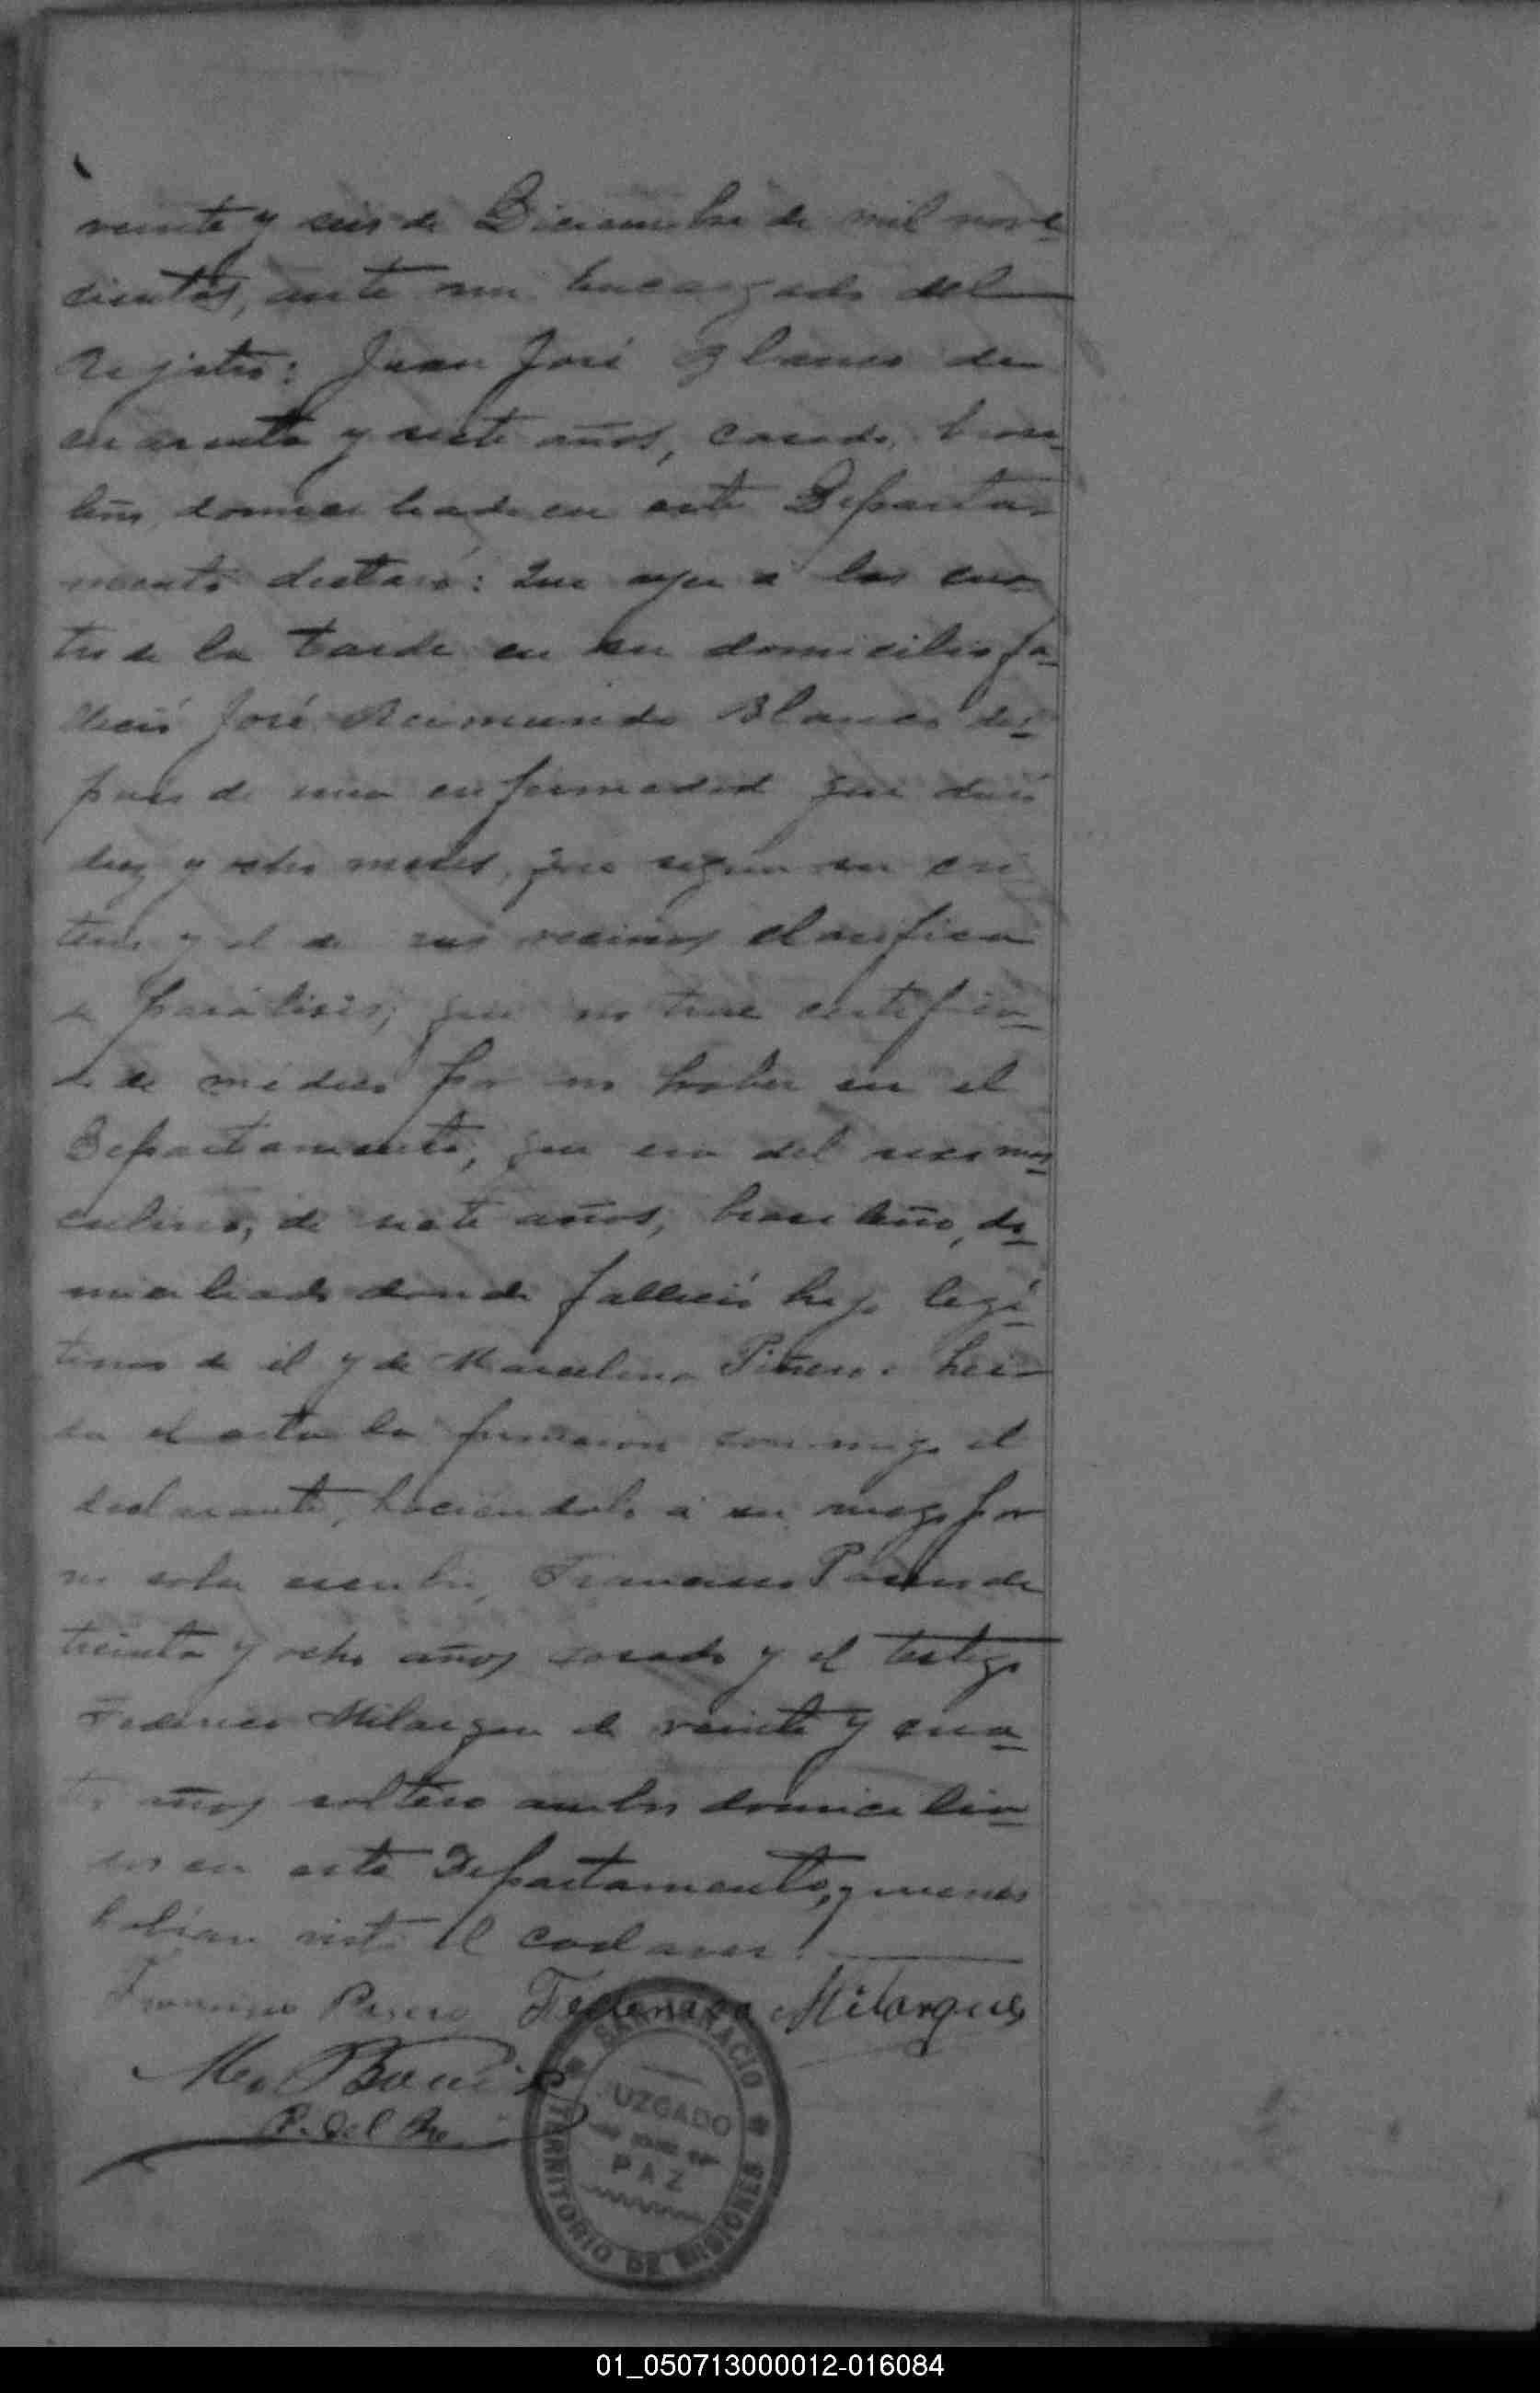 veinte y seis de Diciembre de mil nove-
cientos, ante mi Encargado del
Rejistro: Juan José Blanco de
cuarenta y siete años, casado, brasi-
leño domiciliado en este Departa-
mento declaró: Que ayer á las cua-
tro de la tarde en su domicilio fa-
lleció José Reimundo Blanco des-
pues de una enfermedad que duró
diez y ocho meses, que segun su cri-
terio y el de sus vecinos clasifica
de parálisis; que no trae certifica-
do de médico por no haber en el
Departamento, que era del sexo mas-
culino, de siete años, brasileño, do-
miciliado donde falleció hijo legí-
timo de él y de Marcelina Piñeiro. Lei-
da el acta la firmaron conmigo el
declarante, haciendolo á su ruego por
no saber escribir, Francisco de
treinta y ocho años casado y el testigo
Federico Milarque de veinte y cua-
tro años soltero ambos domicilia-
dos en este Departamento, quienes
habian visto el cadaver.
Francisco Federico Milarques
E. del Rro.
SAN IGNACIO
JUZGADO
DE
PAZ
TERRITORIO DE MISIONES
01_050713000012-016084